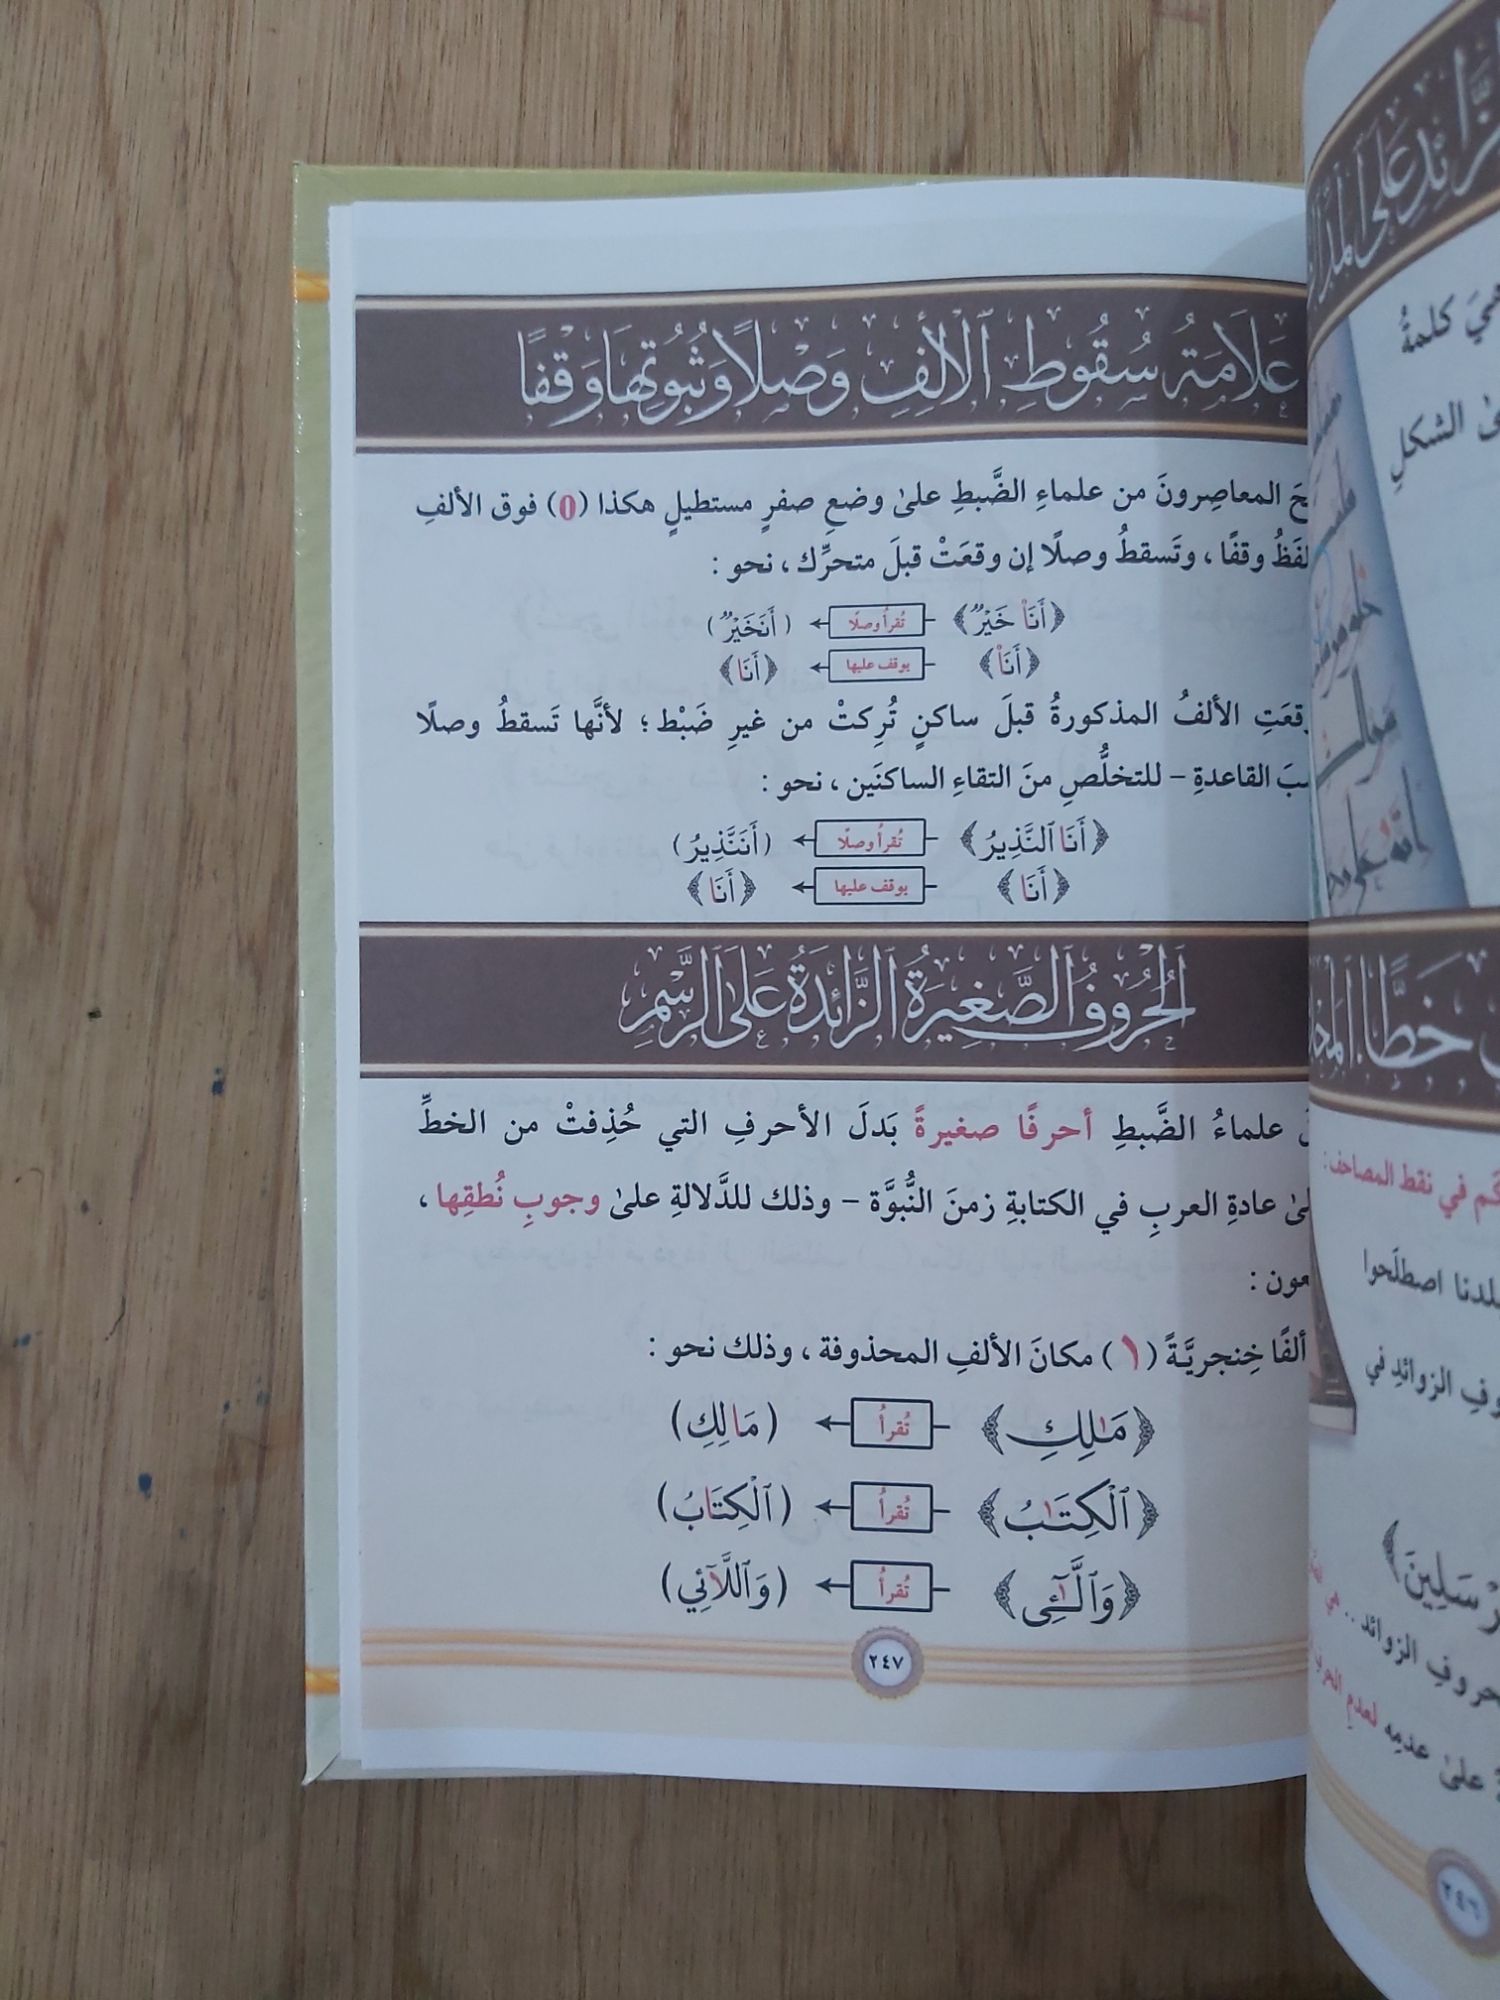 عَلَامَةُ سُقُوطِ ٱلْأَلِفِ وَصْلًا وَثُبُوتِهَا وَقْفًا
المعاصِرونَ من علماءِ الضَّبطِ علىٰ وضعِ صفرٍ مستطيلٍ هكذا (٥) فوق الألفِ
وقفًا ، وتَسقطُ وصلًا إن وقعَتْ قبلَ متحرِّك ، نحو :
﴿أَنَا۠ خَيْرٌ﴾ تُقرأ وصلًا (أَنَخَيْرٌ)
﴿أَنَا۠﴾ يوقف عليها ﴿أَنَا﴾
الألفُ المذكورةُ قبلَ ساكنٍ تُرِكتْ من غيرِ ضَبْط ؛ لأنَّها تَسقطُ وصلًا
القاعدةِ – للتخلُّصِ منَ التقاءِ الساكنَين ، نحو :
﴿أَنَا ٱلنَّذِيرُ﴾ تُقرأ وصلًا (أَنَنَّذِيرُ)
﴿أَنَا﴾ يوقف عليها ﴿أَنَا﴾
ٱلْحُرُوفُ ٱلصَّغِيرَةُ ٱلزَّائِدَةُ عَلَى ٱلرَّسْمِ
علماءُ الضَّبطِ أحرفًا صغيرةً بَدلَ الأحرفِ التي حُذِفتْ من الخطِّ
عادةِ العربِ في الكتابةِ زمنَ النُّبوَّة – وذلك للدَّلالةِ علىٰ وجوبِ نُطقِها ،
ألفًا خِنجريَّةً (١) مكانَ الألفِ المحذوفة ، وذلك نحو :
﴿مَـٰلِكِ﴾ تُقرأ (مَالِكِ)
﴿ٱلْكِتَـٰبُ﴾ تُقرأ (ٱلْكِتَابُ)
﴿وَٱلَّـٰٓـِٔى﴾ تُقرأ (وَٱللَّآئِي)
٢٤٧
كلمةُ
الشكلِ
في نقط المصاحف :
اصطلَحوا
الزوائدِ في
الزوائد . .
علىٰ عدمِه
٢٤٦